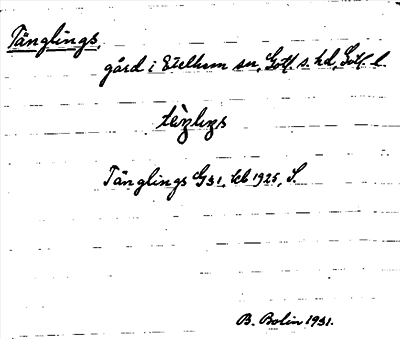 Tänglings,
gård i Etelhem sn, Gotl. s. hd, Gotl. l.
Tänglings G31, kb 1925, S.
B. Bolin 1931.